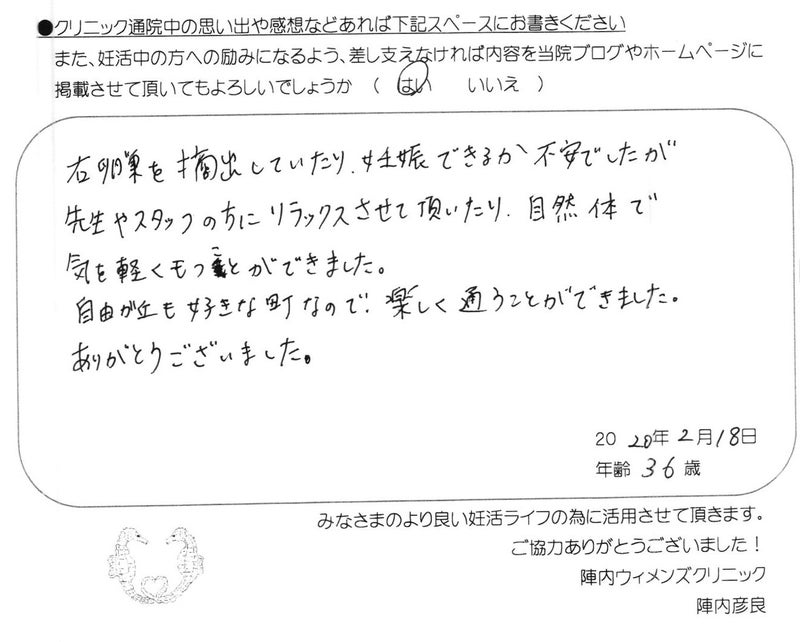 ●クリニック通院中の思い出や感想などあれば下記スペースにお書きください
また、妊活中の方への励みになるよう、差し支えなければ内容を当院ブログやホームページに
掲載させて頂いてもよろしいでしょうか （ はい　いいえ ）
右卵巣を摘出していたり、妊娠できるか不安でしたが
先生やスタッフの方にリラックスさせて頂いたり、自然体で
気を軽くもつことができました。
自由が丘も好きな町なので、楽しく通うことができました。
ありがとうございました。
2020年2月18日
年齢 36歳
みなさまのより良い妊活ライフの為に活用させて頂きます。
ご協力ありがとうございました！
陣内ウィメンズクリニック
陣内彦良